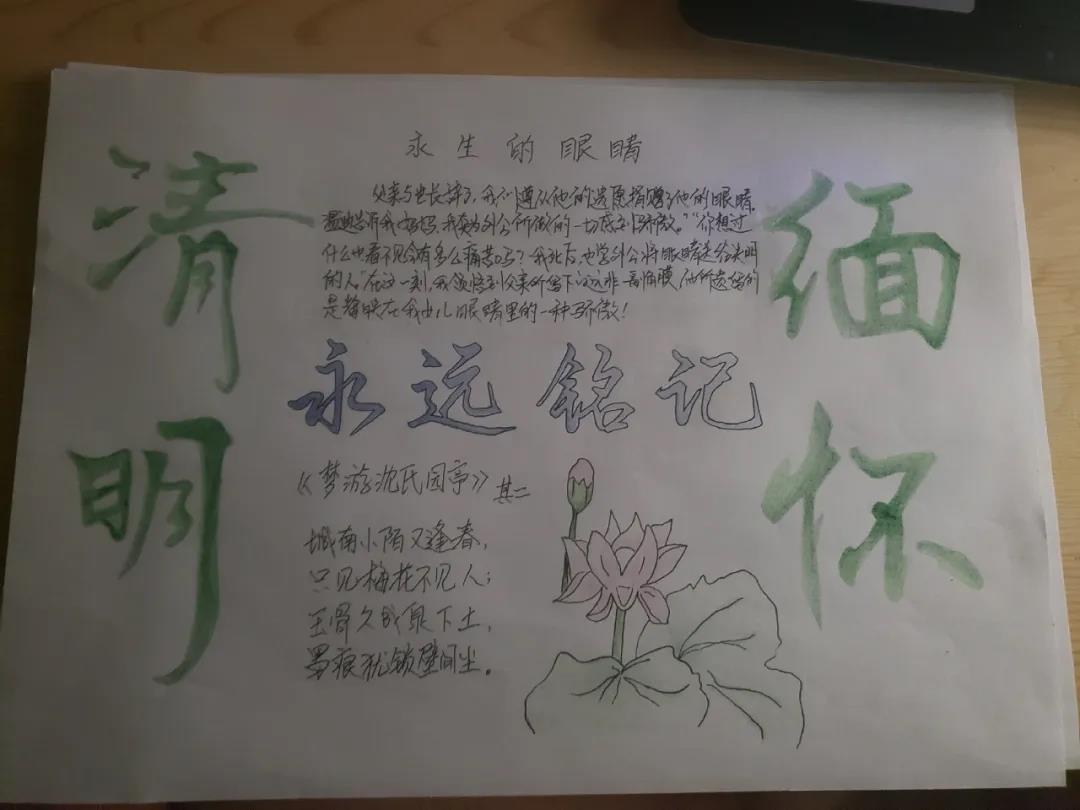 清明
缅怀
永生的眼睛
父亲与世长辞了,我们遵从他的遗愿捐赠了他的眼睛,
温迪告诉我:"妈妈,我真为外公所做的一切感到骄傲。""你想过
什么也看不见会有多么痛苦吗?我死后,也学外公将眼睛送给失明
的人。"在这一刻,我领悟到父亲所留下的远非一副角膜,他所遗留的
是都映在我女儿眼睛里的一种骄傲!
永远铭记
《梦游沈氏园亭》其二
城南小陌又逢春,
只见梅花不见人;
玉骨久成泉下土,
墨痕犹锁壁间尘。